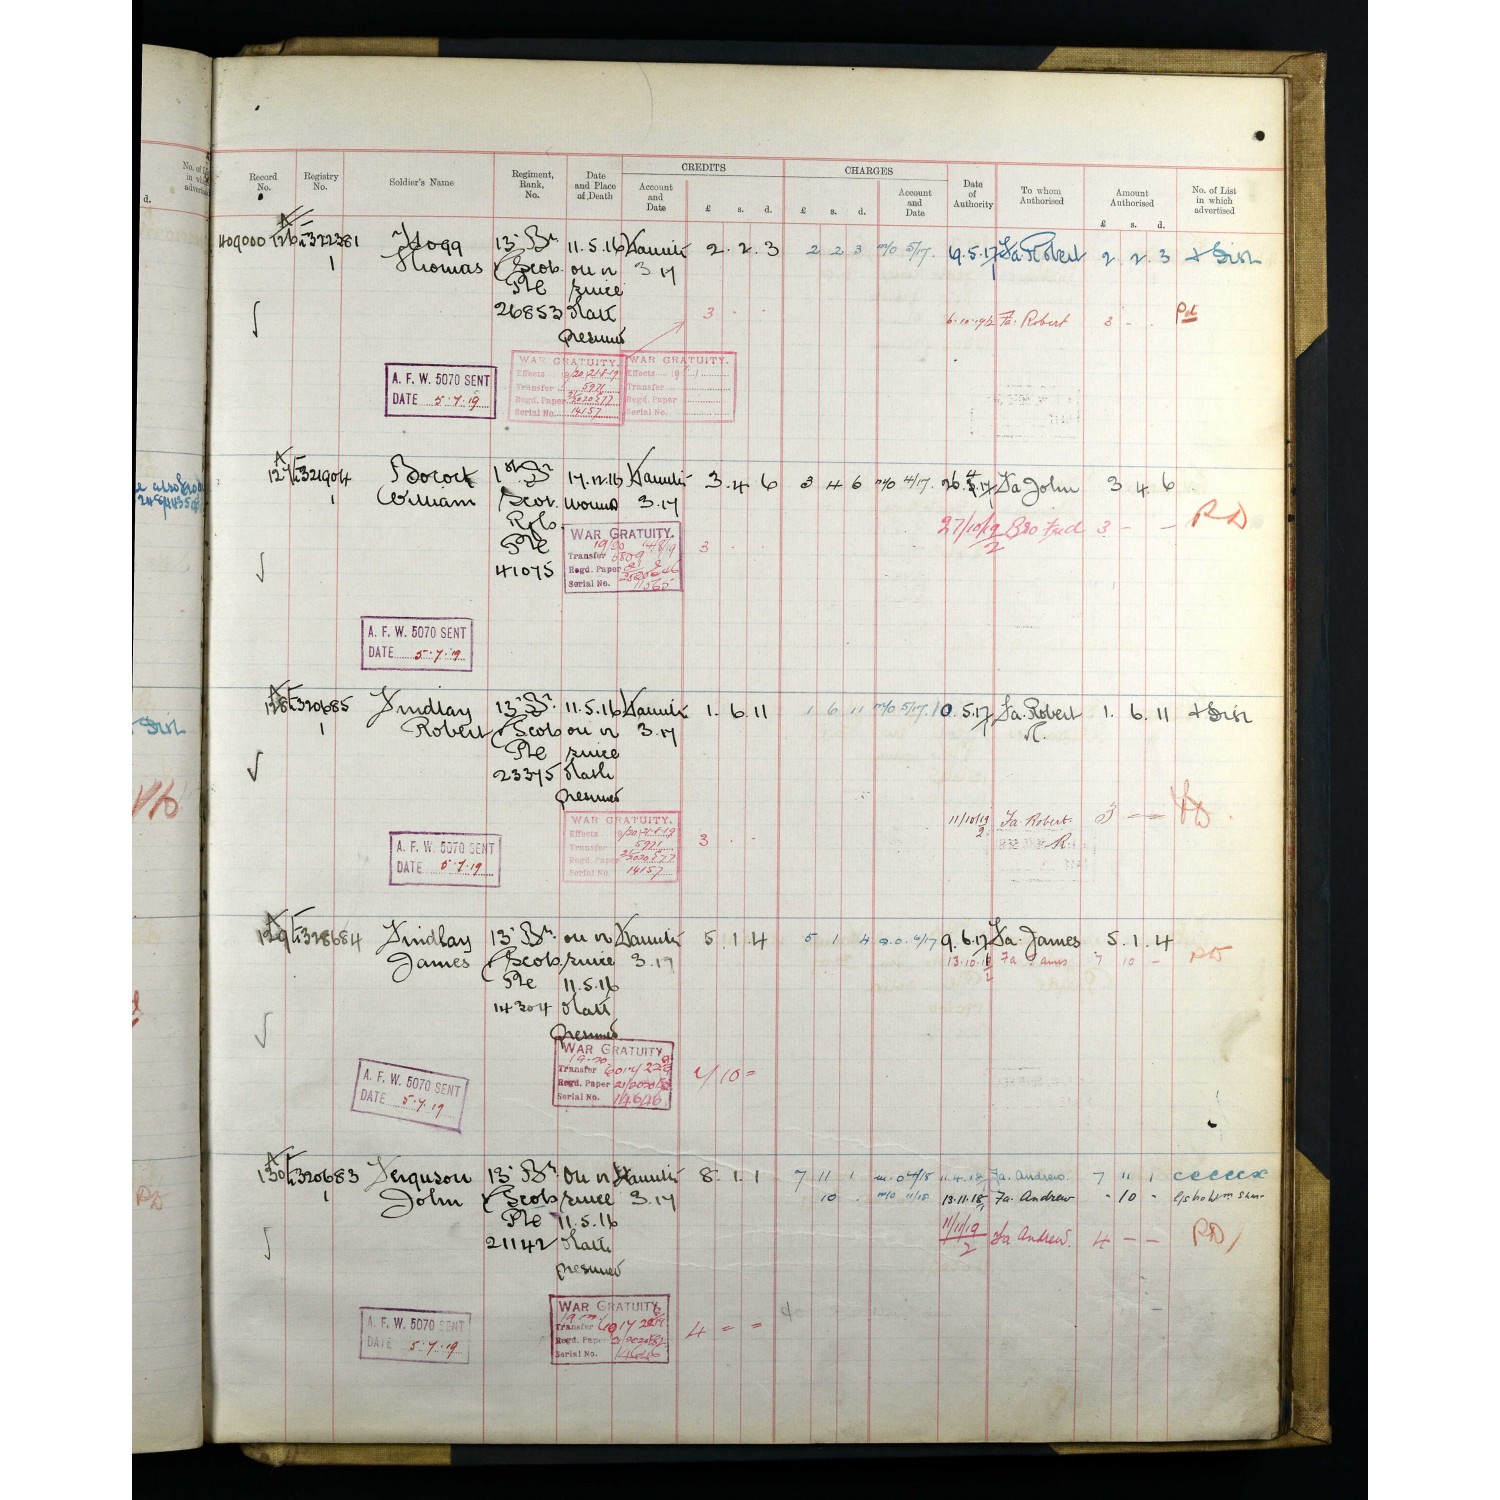 CREDITS CHARGES
Record No. Registry No. Soldier's Name Regiment, Rank, No. Date and Place of Death Account and Date £ s. d. £ s. d. Account and Date Date of Authority To whom Authorised Amount Authorised £ s. d. No. of List in which advertised
409000 126 322381 Hogg 13 Bn 11.5.16 Hamilton 2. 2. 3 2 2 3 m/o 5/17. 9.5.17 Fa. Robert 2 2. 3
1 Thomas R Scots on or 3.17
Pte since
26853 death 3 6.10.19/2 Fa. Robert 3 - . Pd
presumed
WAR GRATUITY. WAR GRATUITY.
A. F. W. 5070 SENT Effects 21.8.19 Effects
DATE 5.7.19 Transfer 5971 Transfer
Regd. Paper Regd. Paper
Serial No. 14157 Serial No.
127 321904 Bocock 1st Bn 17.12.16 Hamilton 3. 4 6 3 4 6 m/o 4/17. Fa John 3 4 6
1 William R Scot. wounds 3.17
Pte WAR GRATUITY. 27/10/19/2 Bro Fred 3 - - PD
19/20 14/8/19 3
Transfer 5809
41075 Regd. Paper
Serial No.
A. F. W. 5070 SENT
DATE 5.7.19
128 320685 Findlay 13 Bn. 11.5.16 Hamilton 1. 6. 11 1 6 11 m/o 5/17. 10.5.17 Fa. Robert 1. 6. 11
1 Robert R Scots on or 3.17 R.
Pte since
23375 death
presumed
WAR GRATUITY. 11/10/19/2 Fa. Robert. 3 - -
A. F. W. 5070 SENT Effects 21.8.19 3 R.
DATE 5.7.19 Transfer 5971
Regd. Paper
Serial No. 14157
129 328684 Findlay 13 Bn. on or Hamilton 5. 1. 4 5 1 4 9.6.17 Fa. James 5. 1. 4
James R Scots since 3.17 Fa James 7 10 - PD
Pte 11.5.16
14304 death
presumed
WAR GRATUITY
A. F. W. 5070 SENT 19-20 7/10 =
DATE 5.7.19 Transfer
Regd. Paper
Serial No. 14646
130 320683 Ferguson 13 Bn on or Hamilton 8. 1. 1 7 11 1 m.o 4/18 11.4.18 Fa. Andrew 7 11 1
1 John R Scots since 3.17 10 . m/o 11/18 13.11.18 Fa. Andrew - 10 -
Pte 11.5.16
21142 death 11/11/19/2 Fa Andrew. 4 - - PD
presumed
WAR GRATUITY
A. F. W. 5070 SENT Transfer 4 = =
DATE 5.7.19 Regd. Paper
Serial No.